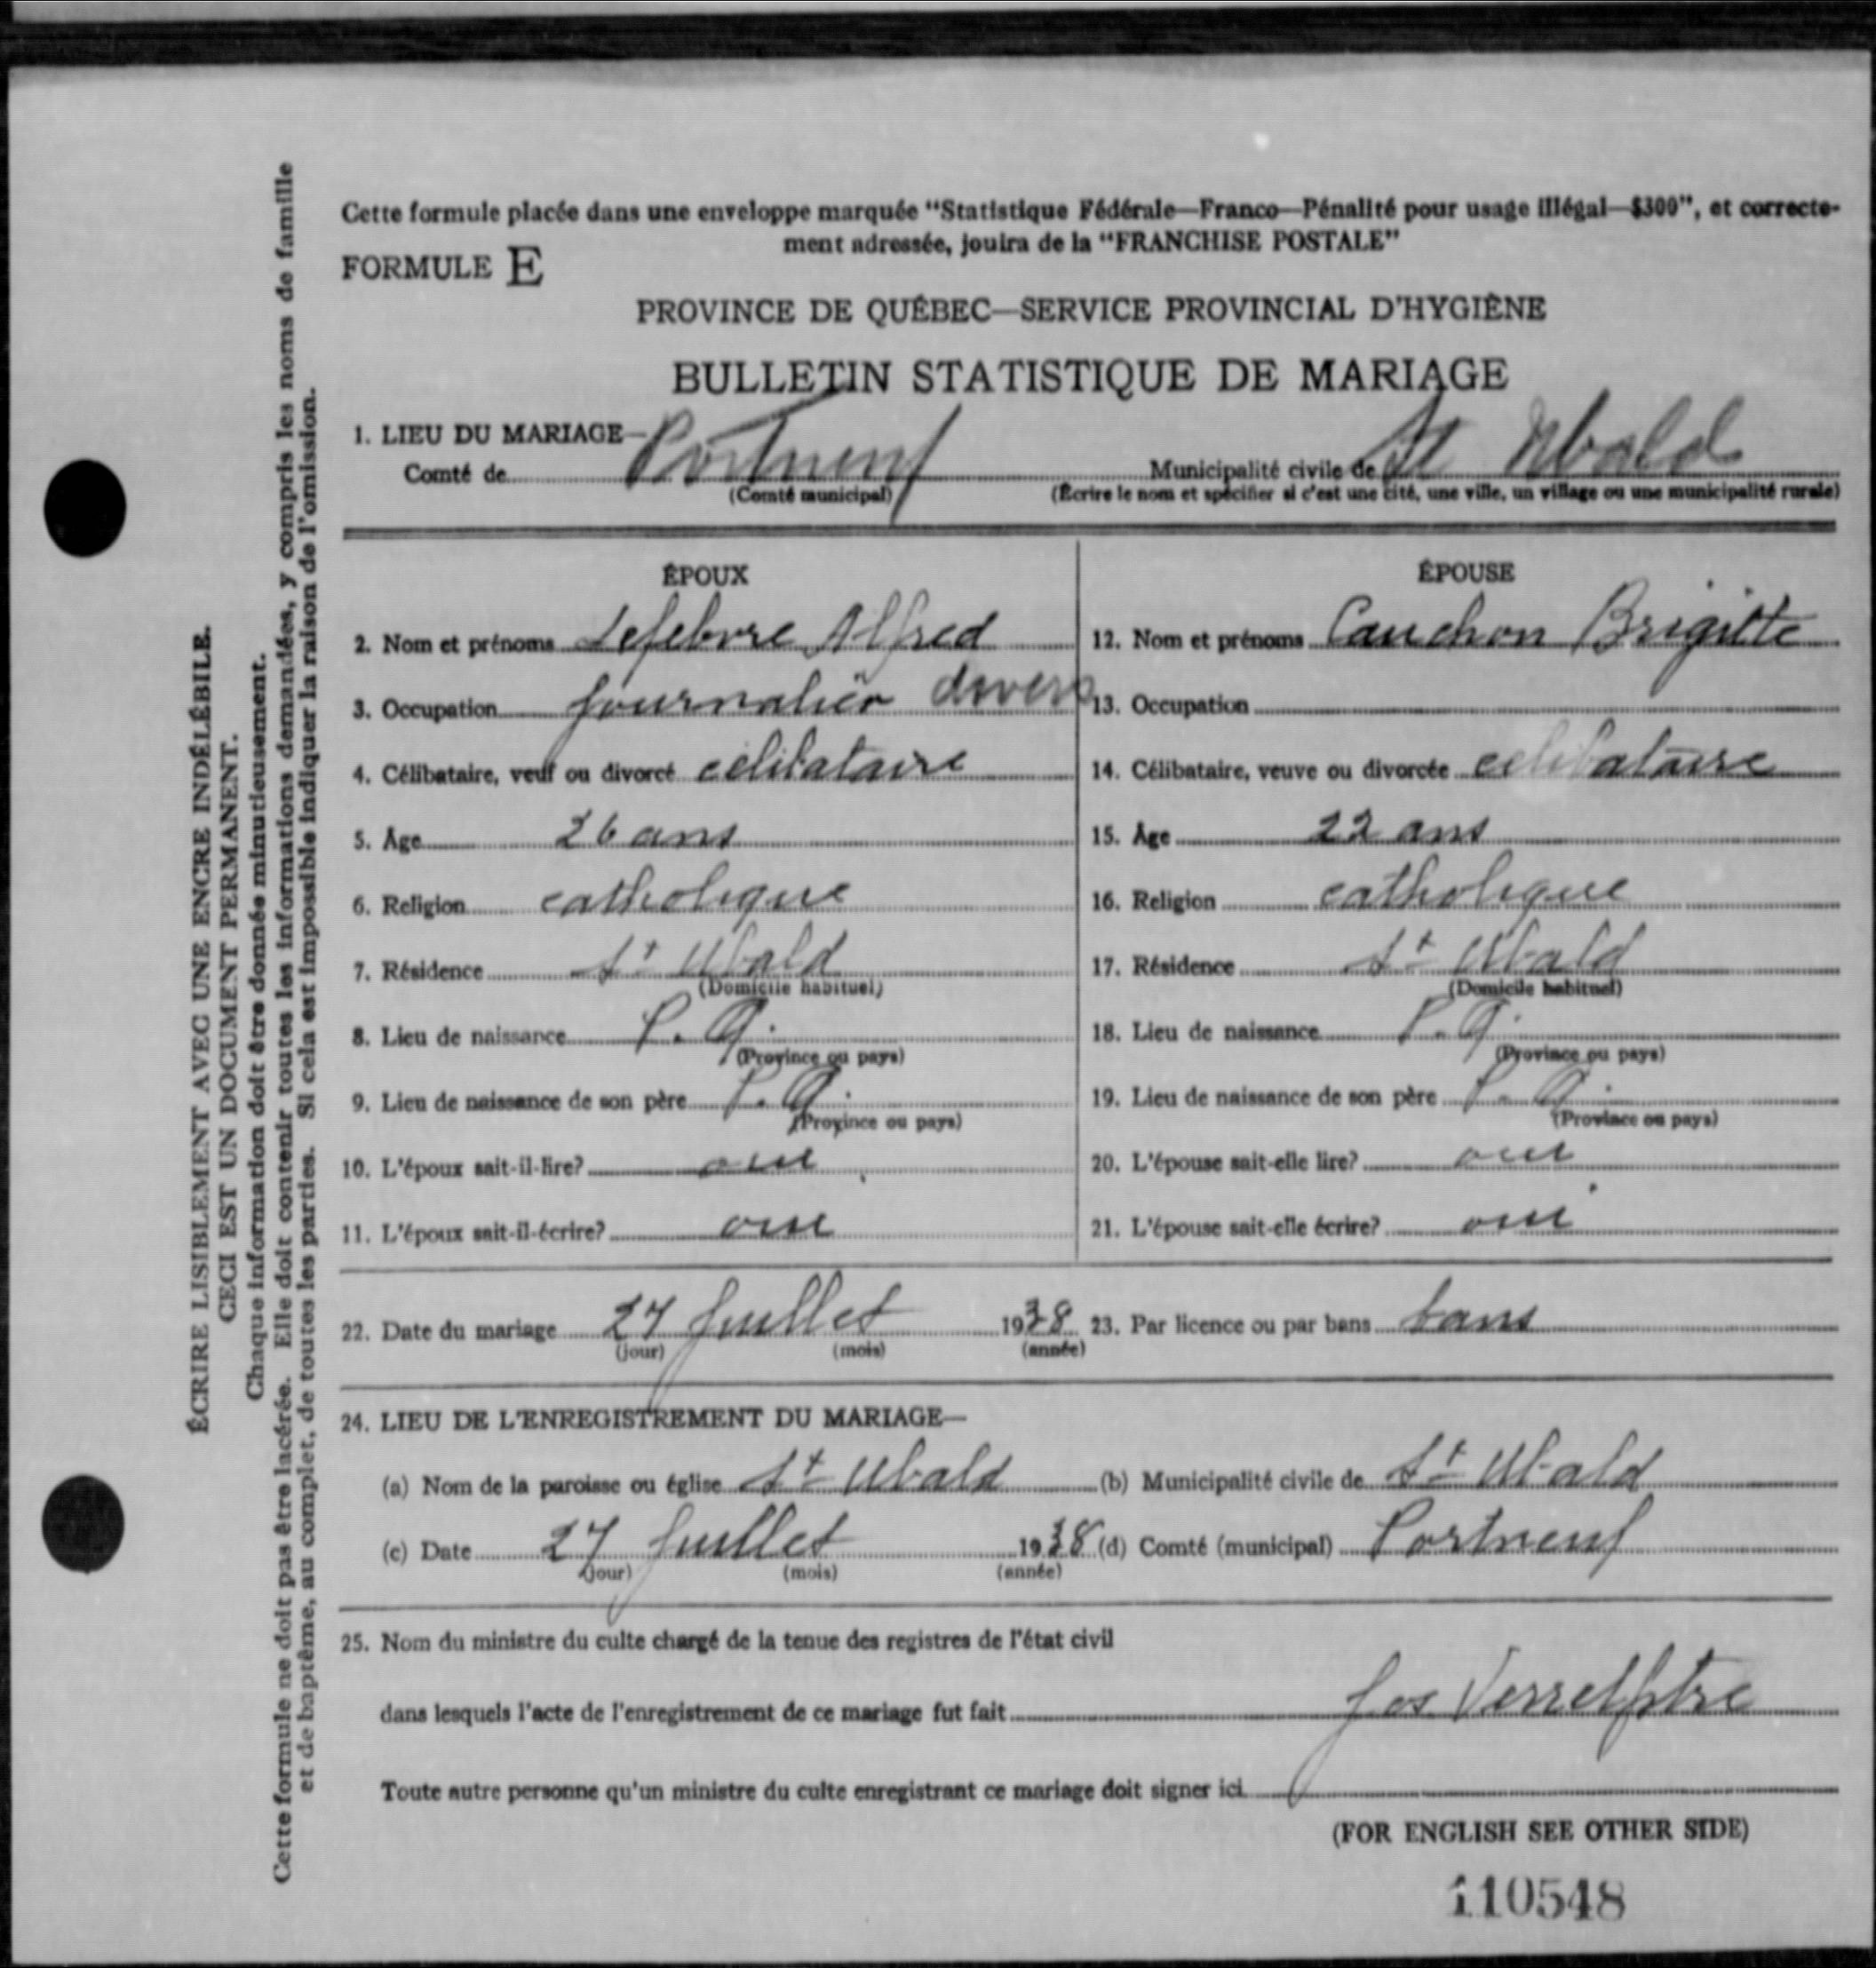 Cette formule placée dans une enveloppe marquée "Statistique Fédérale—Franco—Pénalité pour usage illégal—$300", et correcte-
ment adressée, jouira de la "FRANCHISE POSTALE"
FORMULE E
PROVINCE DE QUÉBEC—SERVICE PROVINCIAL D'HYGIÈNE
BULLETIN STATISTIQUE DE MARIAGE
1. LIEU DU MARIAGE—
Comté de Portneuf Municipalité civile de St Ubald
(Comté municipal) (Écrire le nom et spécifier si c'est une cité, une ville, un village ou une municipalité rurale)
ÉPOUX
2. Nom et prénoms Lefebvre Alfred
3. Occupation journalier divers
4. Célibataire, veuf ou divorcé célibataire
5. Âge 26 ans
6. Religion catholique
7. Résidence St Ubald
(Domicile habituel)
8. Lieu de naissance P. Q.
(Province ou pays)
9. Lieu de naissance de son père P. Q.
(Province ou pays)
10. L'époux sait-il-lire? oui
11. L'époux sait-il-écrire? oui
ÉPOUSE
12. Nom et prénoms Cauchon Brigitte
13. Occupation
14. Célibataire, veuve ou divorcée célibataire
15. Âge 22 ans
16. Religion catholique
17. Résidence St Ubald
(Domicile habituel)
18. Lieu de naissance P. Q.
(Province ou pays)
19. Lieu de naissance de son père P. Q.
(Province ou pays)
20. L'épouse sait-elle lire? oui
21. L'épouse sait-elle écrire? oui
22. Date du mariage 27 juillet 1938 23. Par licence ou par bans bans
(jour) (mois) (année)
24. LIEU DE L'ENREGISTREMENT DU MARIAGE—
(a) Nom de la paroisse ou église St Ubald (b) Municipalité civile de St Ubald
(c) Date 27 juillet 1938 (d) Comté (municipal) Portneuf
(jour) (mois) (année)
25. Nom du ministre du culte chargé de la tenue des registres de l'état civil
dans lesquels l'acte de l'enregistrement de ce mariage fut fait Jos Verret ptre
Toute autre personne qu'un ministre du culte enregistrant ce mariage doit signer ici
(FOR ENGLISH SEE OTHER SIDE)
110548
ÉCRIRE LISIBLEMENT AVEC UNE ENCRE INDÉLÉBILE.
CECI EST UN DOCUMENT PERMANENT.
Chaque information doit être donnée minutieusement.
Cette formule ne doit pas être lacérée. Elle doit contenir toutes les informations demandées, y compris les noms de famille
et de baptême, au complet, de toutes les parties. Si cela est impossible indiquer la raison de l'omission.